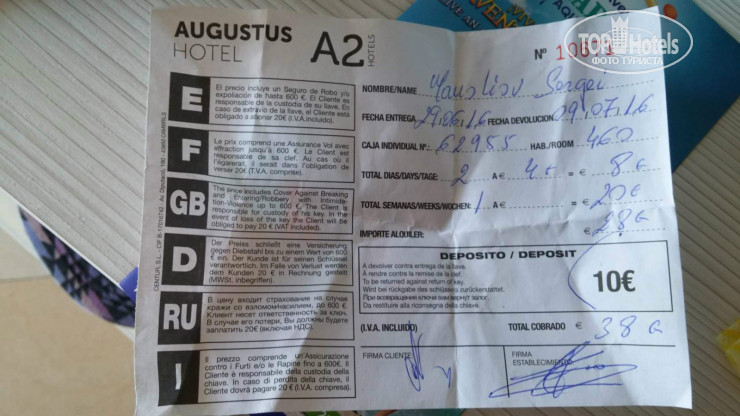 AUGUSTUS
HOTEL
A2
HOTELS
Nº
TOP Hotels
ФОТО ТУРИСТА
E
El precio incluye un Seguro de Robo y/o
expoliación de hasta 600 €. El Cliente es
responsable de la custodia de su llave. En
caso de extravío de la llave, el Cliente está
obligado a abonar 20€ (I.V.A.incluido).
F
Le prix comprend une Assurance Vol avec
effraction jusqu'à 600 €. Le Client est
responsable de sa clef. Au cas où il
l'égarerait, il serait dans l'obligation de
verser 20€ (T.V.A. comprise).
GB
The price includes Cover Against Breaking
and Entering/Robbery with Intimida-
tion-Violence up to 600 €. The Client is
responsible for custody of his key. In the
event of loss of the key the Client will be
obliged to pay 20 € (VAT included).
D
Der Preis schließt eine Versicherung
gegen Diebstahl bis zu einem Wert von 600
€ ein. Der Kunde ist für seinen Schlüssel
verantwortlich. Im Falle von Verlust werden
dem Kunden 20 € in Rechnung gestellt
(MWSt. inbegriffen).
RU
В цену входит страхование на случай
кражи со взломом/насилием, до 600 €.
Клиент несет ответственность за ключ.
В случае его потери, Вы должны будете
заплатить 20€ (включая НДС).
I
Il prezzo comprende un'Assicurazione
contro i Furti e/o le Rapine fino a 600€. Il
Cliente è responsabile della custodia della
chiave. In caso di perdita della chiave, il
Cliente dovrà pagare 20 € (I.V.A. compresa).
NOMBRE/NAME
FECHA ENTREGA 29.06.16 FECHA DEVOLUCION 09.07.16
CAJA INDIVIDUAL Nº: 62955 HAB./ROOM 460
TOTAL DIAS/DAYS/TAGE: 2 A € 4 € = € 8 €
TOTAL SEMANAS/WEEKS/WOCHEN: 1 A € = € 20 €
IMPORTE ALQUILER: € 28 €
DEPOSITO / DEPOSIT
A devolver contra entrega de la llave.
A rendre contre la remise de la clef.
To be returned against return of key.
Wird bei rückgabe des schlüssels zurückerstattet.
При возвращении ключа вам вернут залог.
Da restituire alla riconsegna della chiave.
10€
(I.V.A. INCLUIDO) TOTAL COBRADO € 38 €
FIRMA CLIENTE
FIRMA
ESTABLECIMIENTO